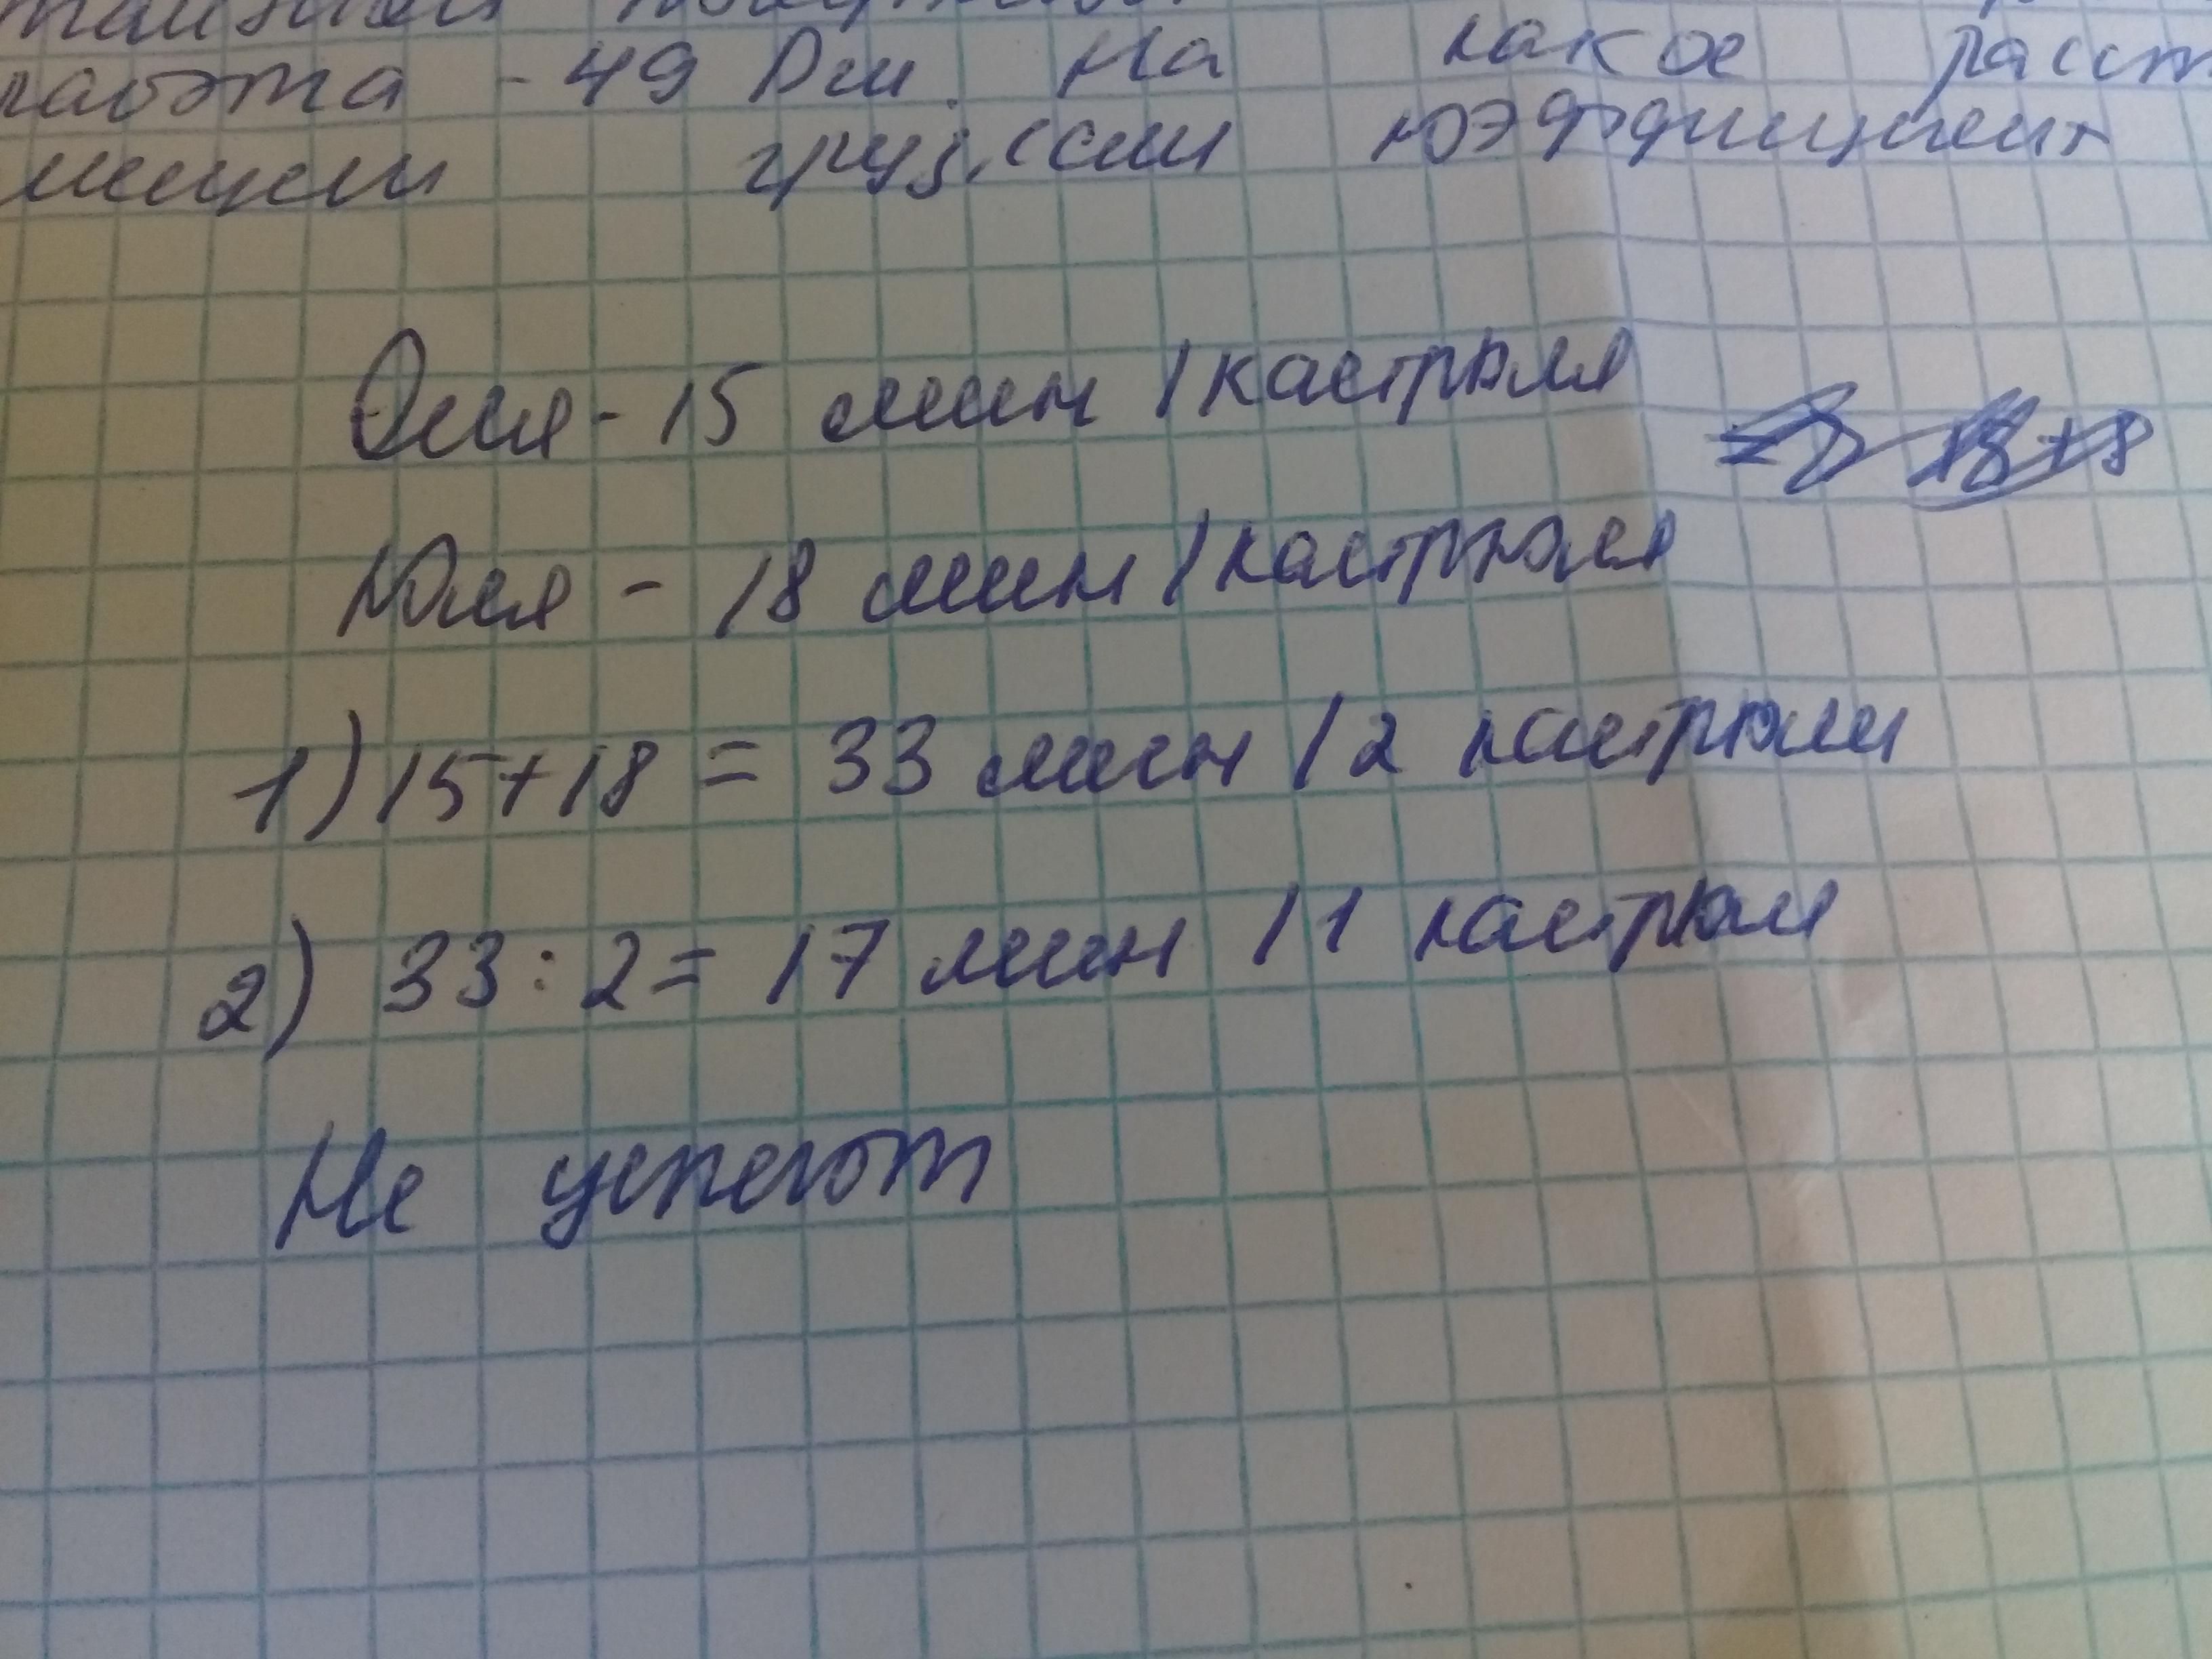 работа - 49 Дж. На какое расст
груз, если коэффициент
Оля - 15 мин / кастрюля
Юля - 18 мин / кастрюля
1) 15+18 = 33 мин / 2 кастрюли
2) 33 : 2 = 17 мин / 1 кастрюли
Не успеют